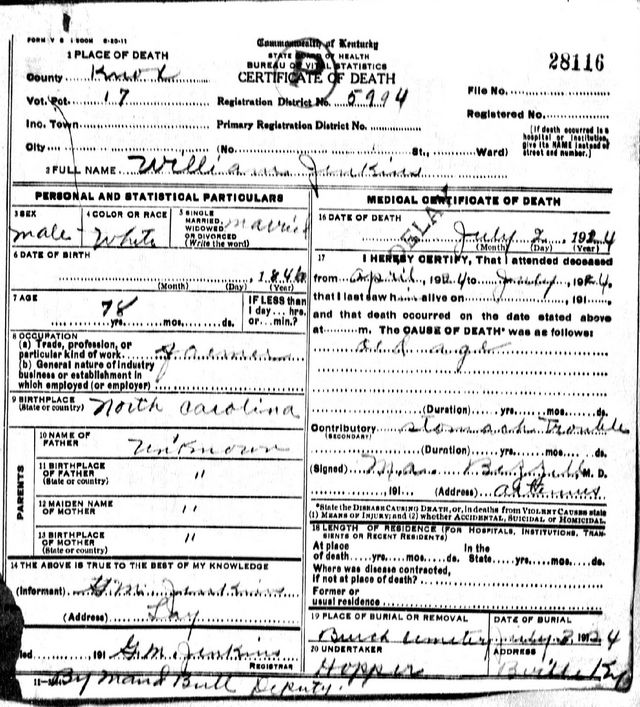 FORM V S 1 500M 6-20-11
Commonwealth of Kentucky
STATE BOARD OF HEALTH
BUREAU OF VITAL STATISTICS
CERTIFICATE OF DEATH
28116
1 PLACE OF DEATH
County Knox
Vot. Pct. 17
Inc. Town
City
Registration District No. 5994
Primary Registration District No.
(No. St., Ward)
File No.
Registered No.
[If death occurred in a
hospital or institution,
give its NAME instead of
street and number.]
2 FULL NAME William Jenkins
PERSONAL AND STATISTICAL PARTICULARS
3 SEX
male
4 COLOR OR RACE
White
5 SINGLE
MARRIED,
WIDOWED
OR DIVORCED
(Write the word)
married
6 DATE OF BIRTH
1846
(Month) (Day) (Year)
7 AGE
78
yrs. mos. ds.
IF LESS than
1 day... hrs.
or... min.?
8 OCCUPATION
(a) Trade, profession, or
particular kind of work farmer
(b) General nature of industry
business or establishment in
which employed (or employer)
9 BIRTHPLACE
(State or country) North Carolina
PARENTS
10 NAME OF
FATHER
Unknown
11 BIRTHPLACE
OF FATHER
(State or country)
"
12 MAIDEN NAME
OF MOTHER
"
13 BIRTHPLACE
OF MOTHER
(State or country)
"
14 THE ABOVE IS TRUE TO THE BEST OF MY KNOWLEDGE
(Informant) G.M. Jenkins
(Address) Lay
191 G.M. Jenkins
REGISTRAR
By Maud Bull Deputy.
MEDICAL CERTIFICATE OF DEATH
DELAY
16 DATE OF DEATH
July 2, 1924
(Month) (Day) (Year)
17 I HEREBY CERTIFY, That I attended deceased
from April 1924 to July, 1924.
that I last saw him alive on, 191
and that death occurred on the date stated above
at m. The CAUSE OF DEATH* was as follows:
old age
(Duration) yrs. mos. ds.
Contributory stomach trouble
(SECONDARY)
(Duration) yrs. mos. ds.
(Signed) M. D.
191 (Address) Artemus
*State the DISEASE CAUSING DEATH, or, in deaths from VIOLENT CAUSES state
(1) MEANS OF INJURY; and (2) whether ACCIDENTAL, SUICIDAL or HOMICIDAL.
18 LENGTH OF RESIDENCE (FOR HOSPITALS, INSTITUTIONS, TRAN-
SIENTS OR RECENT RESIDENTS)
At place In the
of death yrs. mos. ds. State yrs. mos. ds.
Where was disease contracted,
If not at place of death?
Former or
usual residence
19 PLACE OF BURIAL OR REMOVAL
Burch Cemetery
DATE OF BURIAL
July 3 1924
20 UNDERTAKER
Hopper
ADDRESS
Bville Ky